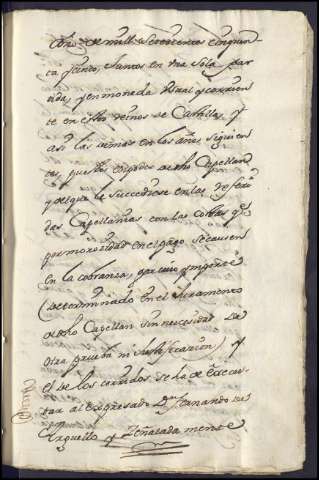 año de mill setecientos cinquen
ta y cinco, Juntos en una sola par
tida, y en moneda usual y corrien
te en estos reinos de Castilla, y
asi los demas en los años siguien
tes, puestos en poder de dho Capellan
y de el que le succediese en las referi
das Capellanias con las costas q.e
por morosidad en el pago se causen
en la cobranza, por cuio importe
(determinado en el Juramento
de dho Capellan sin necesidad de
otra prueba ni Justificacion) y
el de los corridos se ha de execu
tar al expresado Dn. Fernando de
Arguello y señaladamente